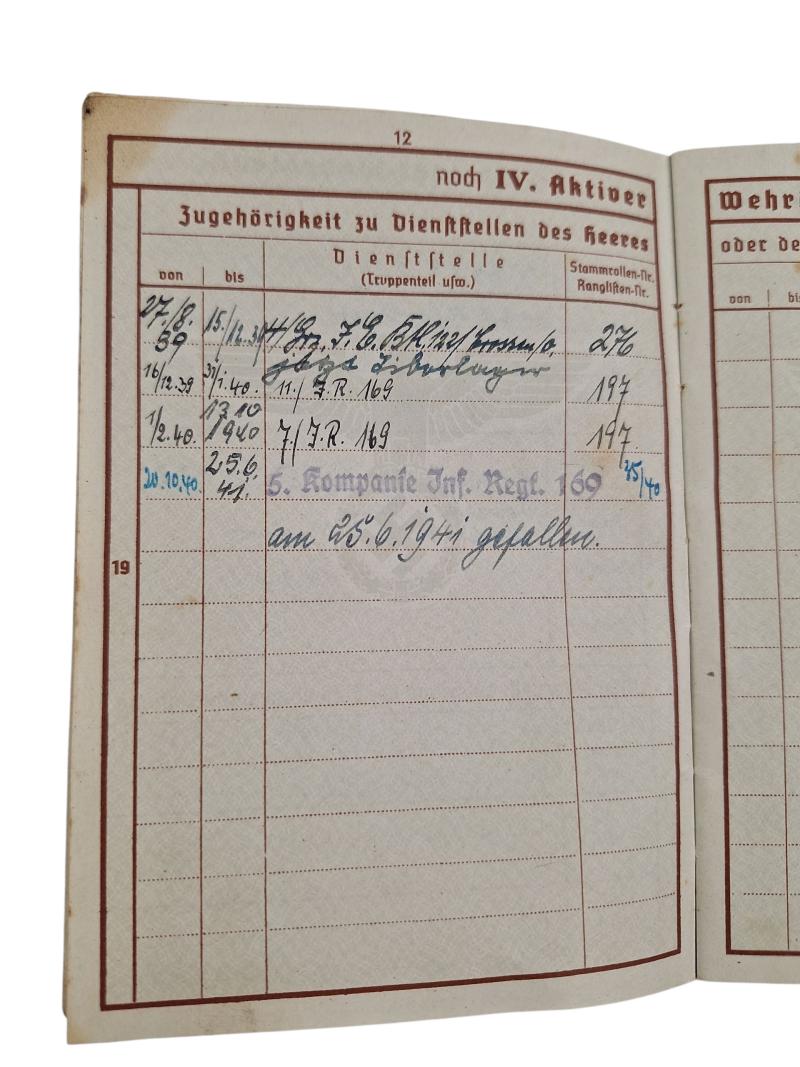 12
noch IV. Aktiver
Zugehörigkeit zu Dienststellen des Heeres
von bis Dienststelle (Truppenteil usw.) Stammrollen-Nr. Ranglisten-Nr.
27./8. 39 15./12.39 4/ J. E. Btl. 122/ Crossen/O. 276
jetzt
16/12.39 31/1.40. 11./ J.R. 169 197
1/2.40. 13.10 1940 7./ J.R. 169 197
20.10.40. 25.6. 41. 5. Kompanie Inf. Regt. 169 35/40
am 25.6.1941 gefallen.
19
Wehr
oder de
von bi